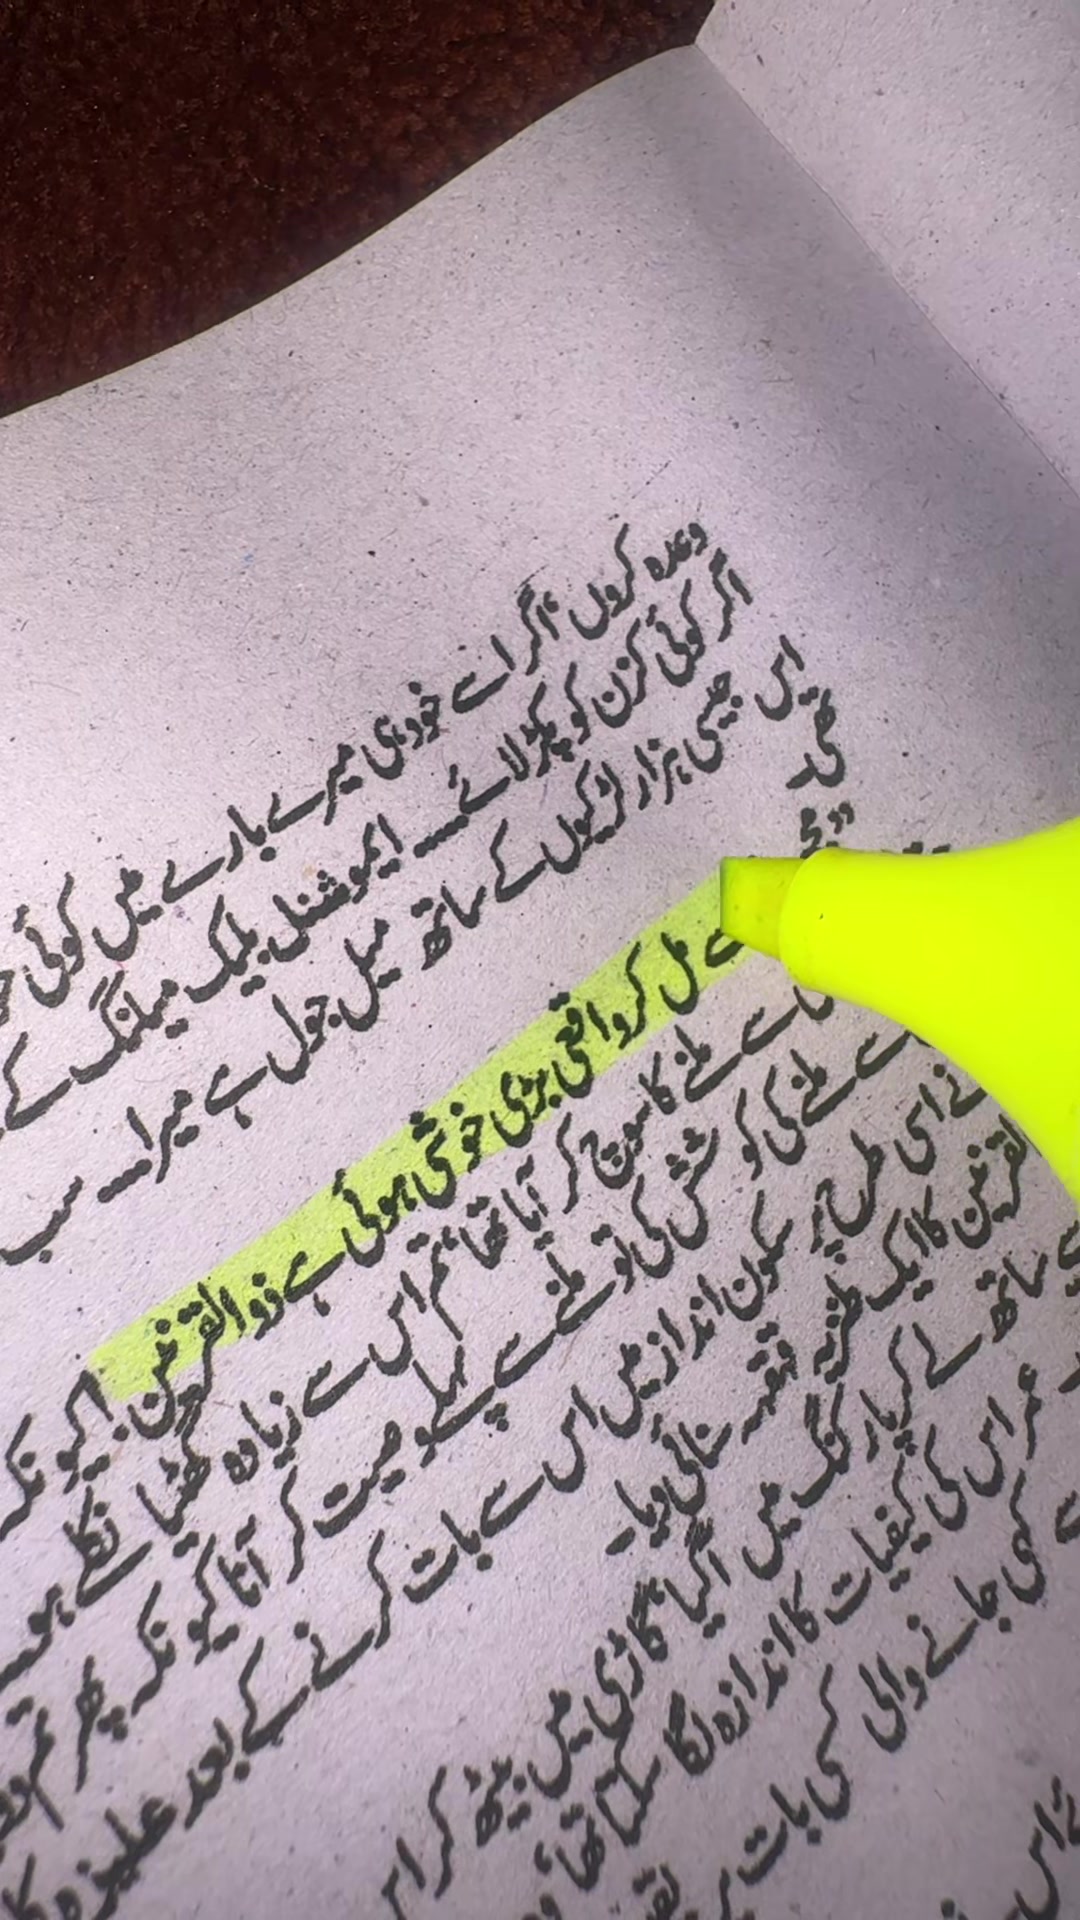 وعدہ کرلوں، اگر اسے خود ہی میرے بارے میں کوئی
اگر کوئی کزن کو پکڑ لائے۔۔۔۔ ایموشنل بلیک میلنگ کے
اس جیسی ہزار لڑکیوں کے ساتھ میل جول ہے میرا۔۔۔ سب
تھی۔
سے مل کر واقعی بڑی خوشی ہوئی ہے ذوالقرنین! کیونکہ
سے ملنے کا سوچ کر آیا تھا تم اس سے زیادہ گھٹیا نکلے ہو۔
سے ملنے کی کوشش کی تو ملنے سے پہلے وصیت کر آنا کیونکہ پھر تم
نے اسی طرح پر سکون انداز میں اس سے بات کرنے کے بعد علیزہ کا
القرنین کا ایک طنزیہ قہقہہ سنائی دیا۔
ساتھ لے کر پارکنگ میں آ گیا، گاڑی میں بیٹھ کر اس
عمر اس کی کیفیات کا اندازہ لگا سکتا تھا،
کہی جانے والی کسی بات پر